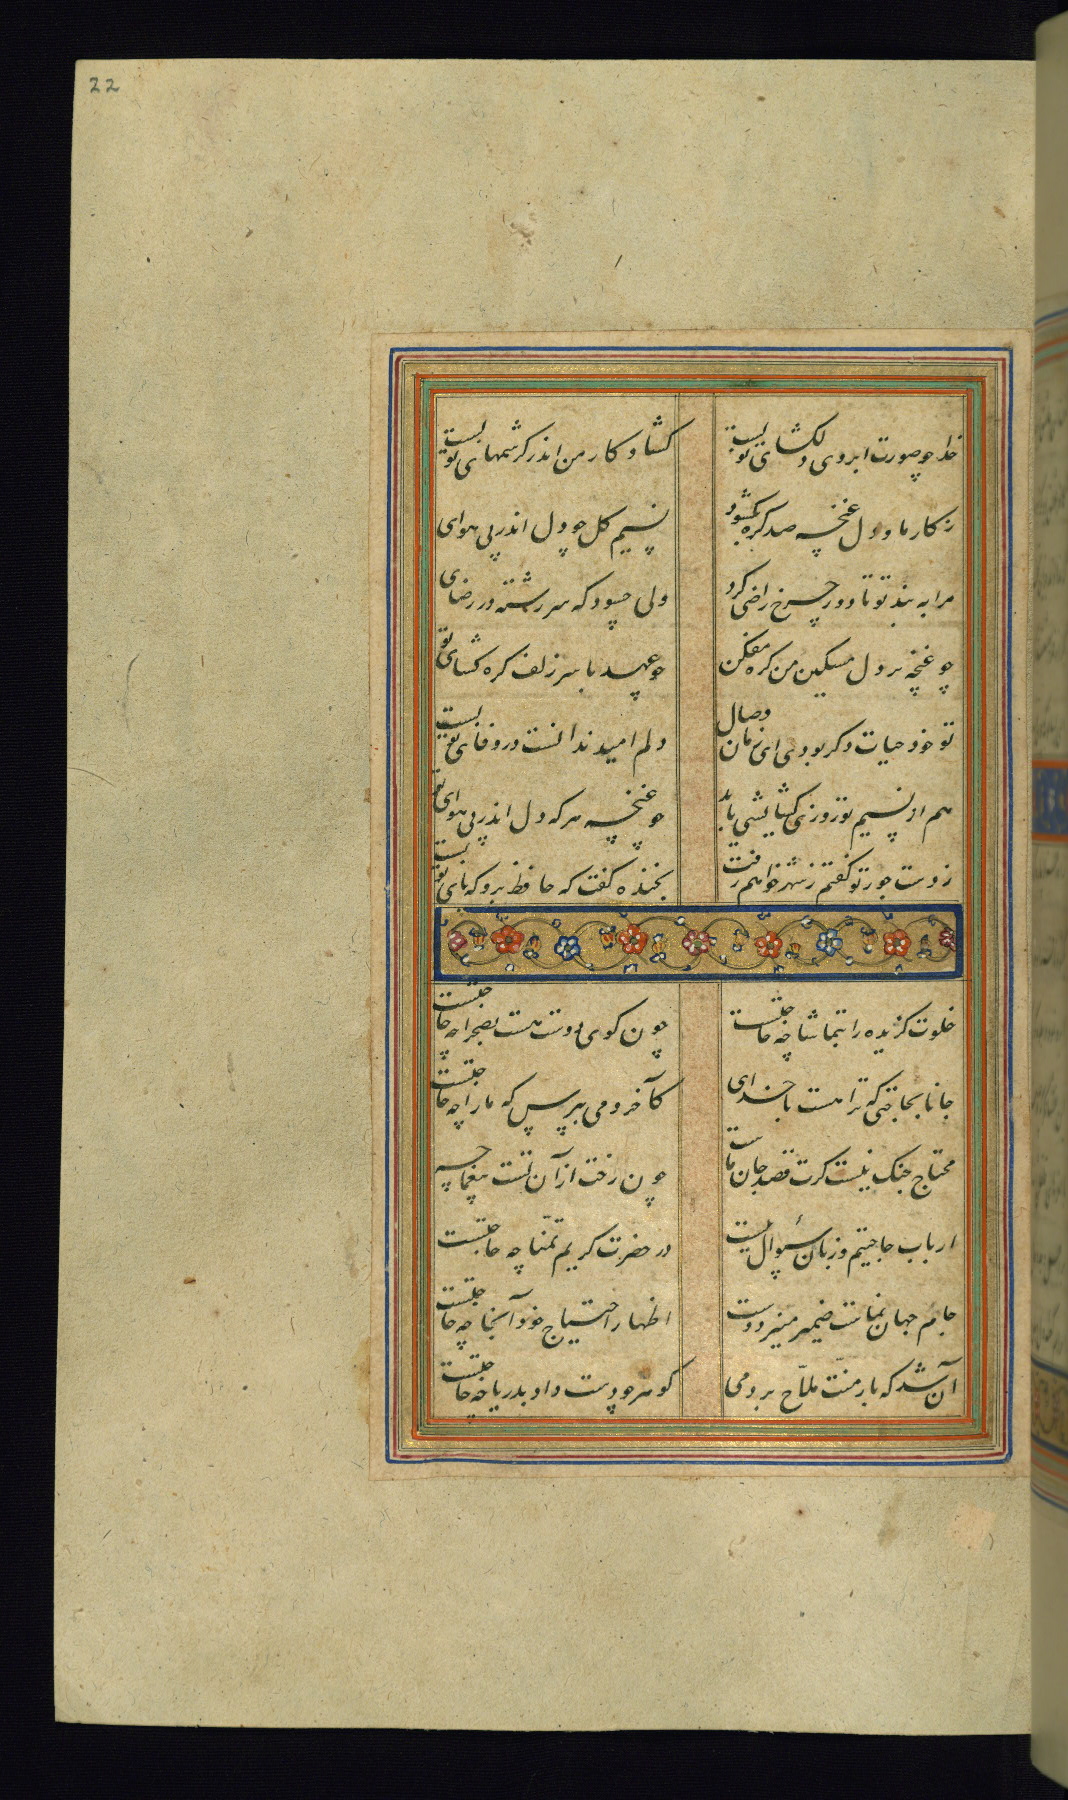 22
خدا چو صورت ابروی دلکشای تو بست
کشاد کار من اندر کرشمهای تو بست
ز کار ما و دل غنچه صد کره بکشود
نسیم کل چو دل اندر پی هوای
مرا به بند تو تا دور چرخ راضی کرد
ولی چسود که سر رشته در رضای
چو غنچه بر دل مسکین من کره مفکن
چو عهد با سر زلف کره کشای تو
تو خود حیات دکر بودی ای زمان وصال
دلم امید ندانست در وفای تو بست
هم از نسیم تو روزی کشایشی یابد
چو غنچه هر که دل اندر پی هوای تو بست
ز دست جور تو کفتم ز شهر خواهم رفت
بخنده کفت که حافظ برو که پای تو
خلوت کزیده را بتماشا چه حاجتست
چون کوی دوست هست بصحرا چه حاجتست
جانا بحاجتی که ترا هست با خدای
کآخر دمی بپرس که ما را چه حاجتست
محتاج جنک نیست کرت قصد جان ماست
چون رخت از آن تست بیغما چه
ارباب حاجتیم و زبان سئوال نیست
در حضرت کریم تمنّا چه حاجتست
جام جهان نماست ضمیر منیر دوست
اظهار احتیاج خود آنجا چه حاجتست
آن شد که بار منّت ملّاح بردمی
کوهر چو دست داد بدریا چه حاجتست